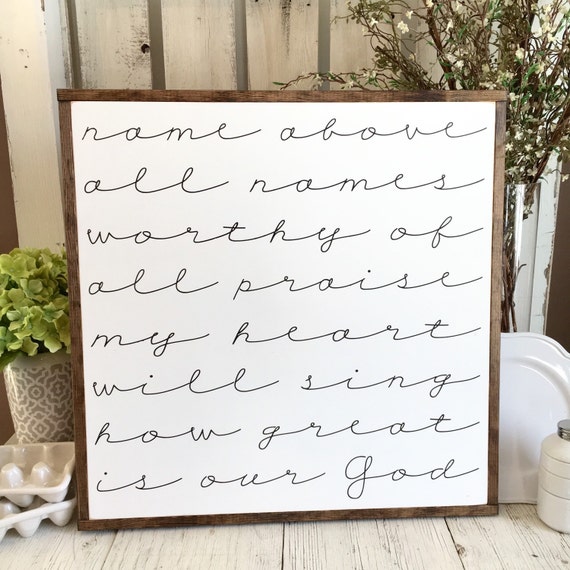 name above
all names
worthy of
all praise
my heart
will sing
how great
is our God